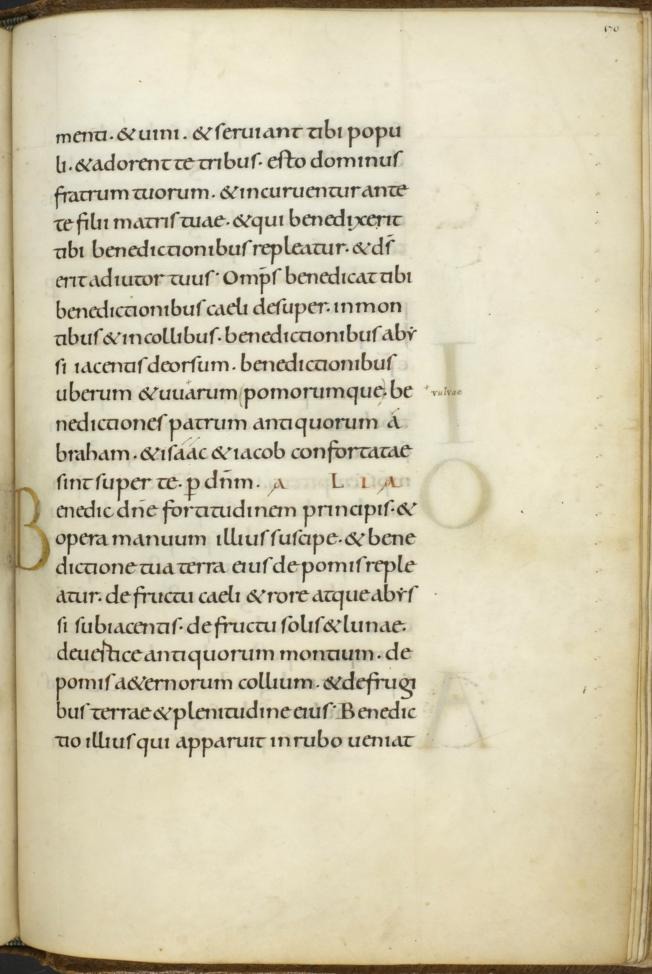 170
menti. & uini. & seruiant tibi popu
li. & adorent te tribus. esto dominus
fratrum tuorum. & incuruentur ante
te filii matris tuae. & qui benedixerit
tibi benedictionibus repleatur. & d̄s
erit adiutor tuus. Omp̄s benedicat tibi
benedictionibus caeli desuper. in mon
tibus & in collibus. benedictionibus aby
ssi iacentis deorsum. benedictionibus
uberum & uuarum pomorumque. be vulvae
nedictiones patrum antiquorum a
braham. & isaac & iacob confortatae
sint super te. p dn̄m. ALIA
Benedic dn̄e fortitudinem principis. &
opera manuum illius suscipe. & bene
dictione tua terra eius de pomis reple
atur. de fructu caeli & rore atque abys
si subiacentis. de fructu solis & lunae.
de uestice antiquorum montium. de
pomis a&ernorum collium. & de frugi
bus terrae & plenitudine eius. Benedic
tio illius qui apparuit in rubo ueniat